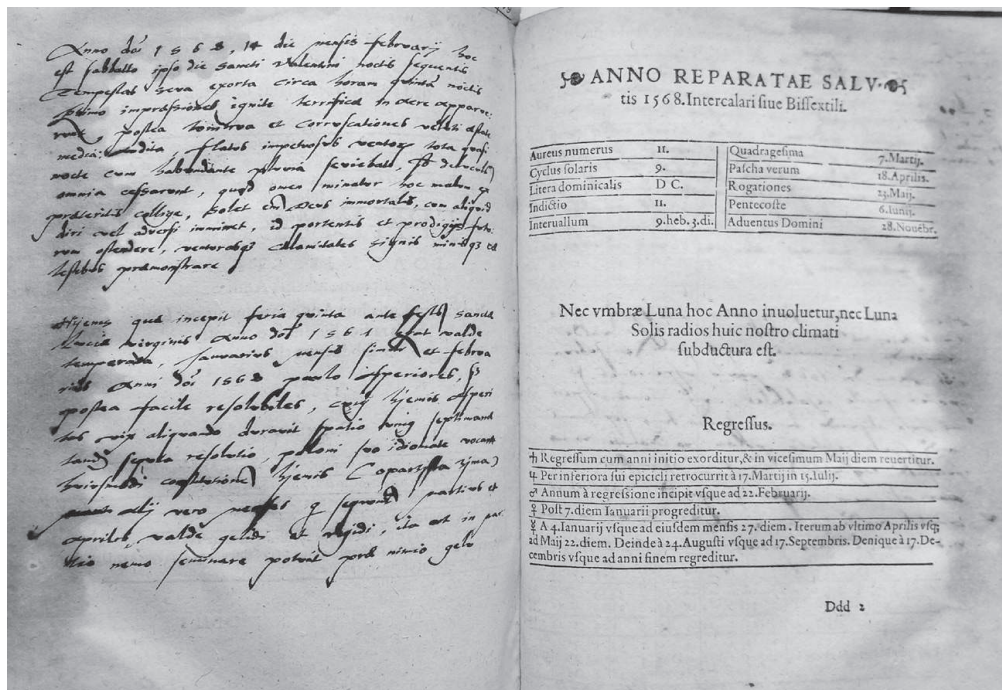 Anno dni 1568, 14 die mensis februarij hoc
est sabbatto ipso die sancti Valentini noctis sequentis
tempestas seva exorta circa horam quintã noctis
primo impressiones ignite terrifice in aere apparue
postea tonitrua et corruscationes veluti estate
media audita, flatus impetuosus ventorum tota quasi
nocte cum habundante pluvia seviebat,
omnia cessarunt, quod omen minatur hoc malum ex
præteritis collige, solet Deus immortalis, cum aliquid
diri vel adversi imminet, id portentis et prodigijs futu
rum ostendere, venturasq calamitates signis
testibus præmonstrare
Hijems que incepit feria quinta ante festũ sancte
Lucie virginis Anno doi 1567 valde
temperata, Januarius mensis simul et februa
rius Anni doi 1568 paulo asperiores,
postea facile resolubiles, hijemis asperi
tas vix aliquando duravit spatio unius septimane
sequta resolutio, poloni suo idiomate vocant
huiusmodi hijemis zima)
alij vero menses q sequunt martius et
aprilis, valde gelidi et rigidi, ita ut in
nemo seminare potuit nimio gelu
ANNO REPARATAE SALV-
tis 1568. Intercalari siue Bissextili.
Aureus numerus 11. Quadragesima 7. Martij.
Cyclus solaris 9. Pascha verum 18. Aprilis.
Litera dominicalis D C. Rogationes 23. Maij.
Indictio 11. Pentecoste 6. Iunij.
Interuallum 9. heb. 3. di. Aduentus Domini 28. Nouẽbr.
Nec vmbræ Luna hoc Anno inuoluetur, nec Luna
Solis radios huic nostro climati
subductura est.
Regressus.
♄ Regressum cum anni initio exorditur, & in vicesimum Maij diem reuertitur.
♃ Per inferiora sui epicicli retrocurrit à 17. Martij in 15. Iulij.
♂ Annum à regressione incipit vsque ad 22. Februarij.
♀ Post 7. diem Ianuarii progreditur.
☿ A 4. Ianuarij vsque ad eiusdem mensis 27. diem. Iterum ab vltimo Aprilis vsq;
ad Maij 22. diem. Deinde à 24. Augusti vsque ad 17. Septembris. Denique à 17. De-
cembris vsque ad anni finem regreditur.
Ddd 2